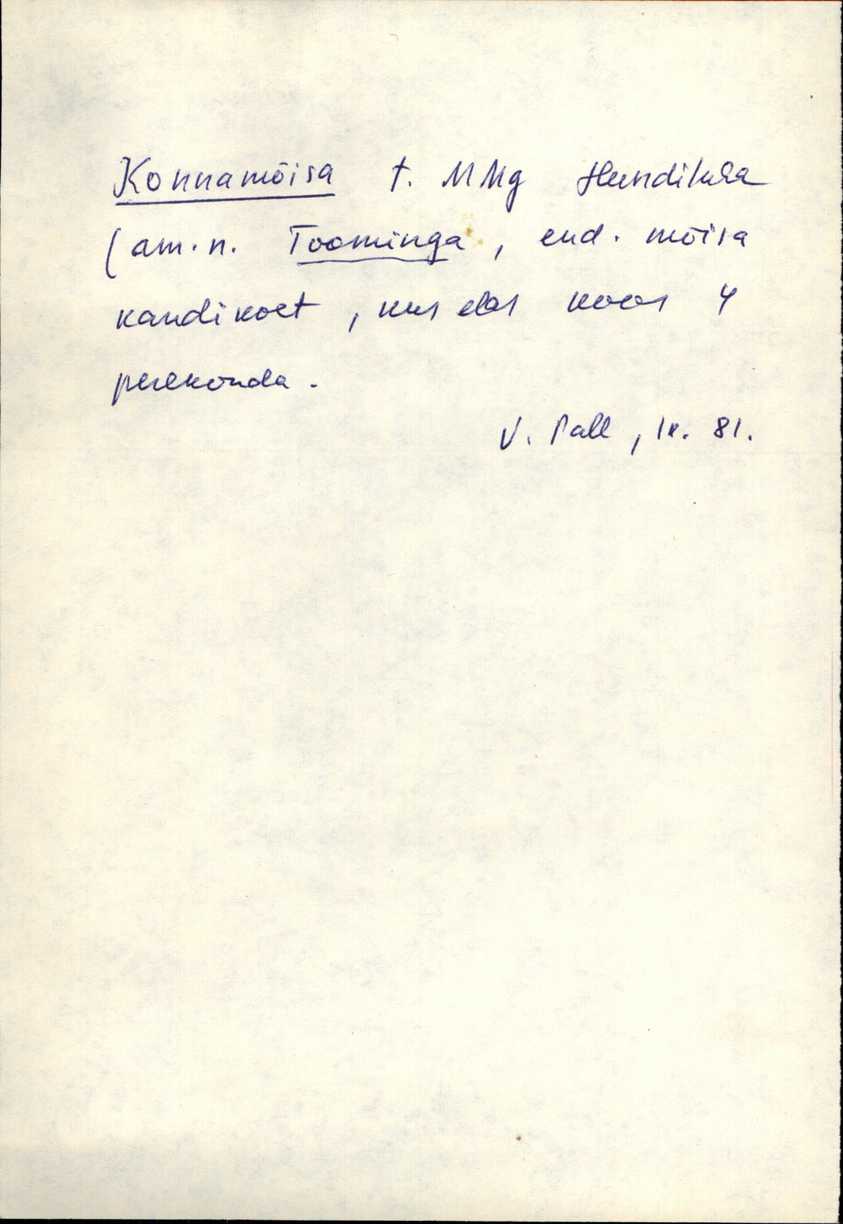 Konnamõisa t. MMg Hundikura
(am.n. Toominga, end. mõisa
kandikoet, kus elas koos 4
perekonda.
V. Pall, IX. 81.